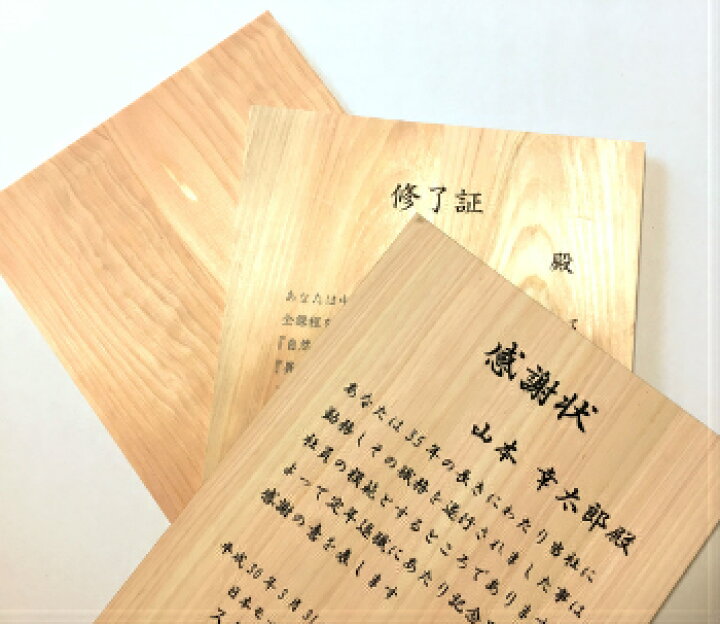 修了証
殿
あなたは
全課程
『自然
感謝状
山本 幸太郎殿
あなたは35年の長きにわたり当社に
勤務しその職務を遂行されました事は
社員の模範とするところであります
よって定年退職にあたり記念
感謝の意を表します
平成30年3月31
日本モ
ス